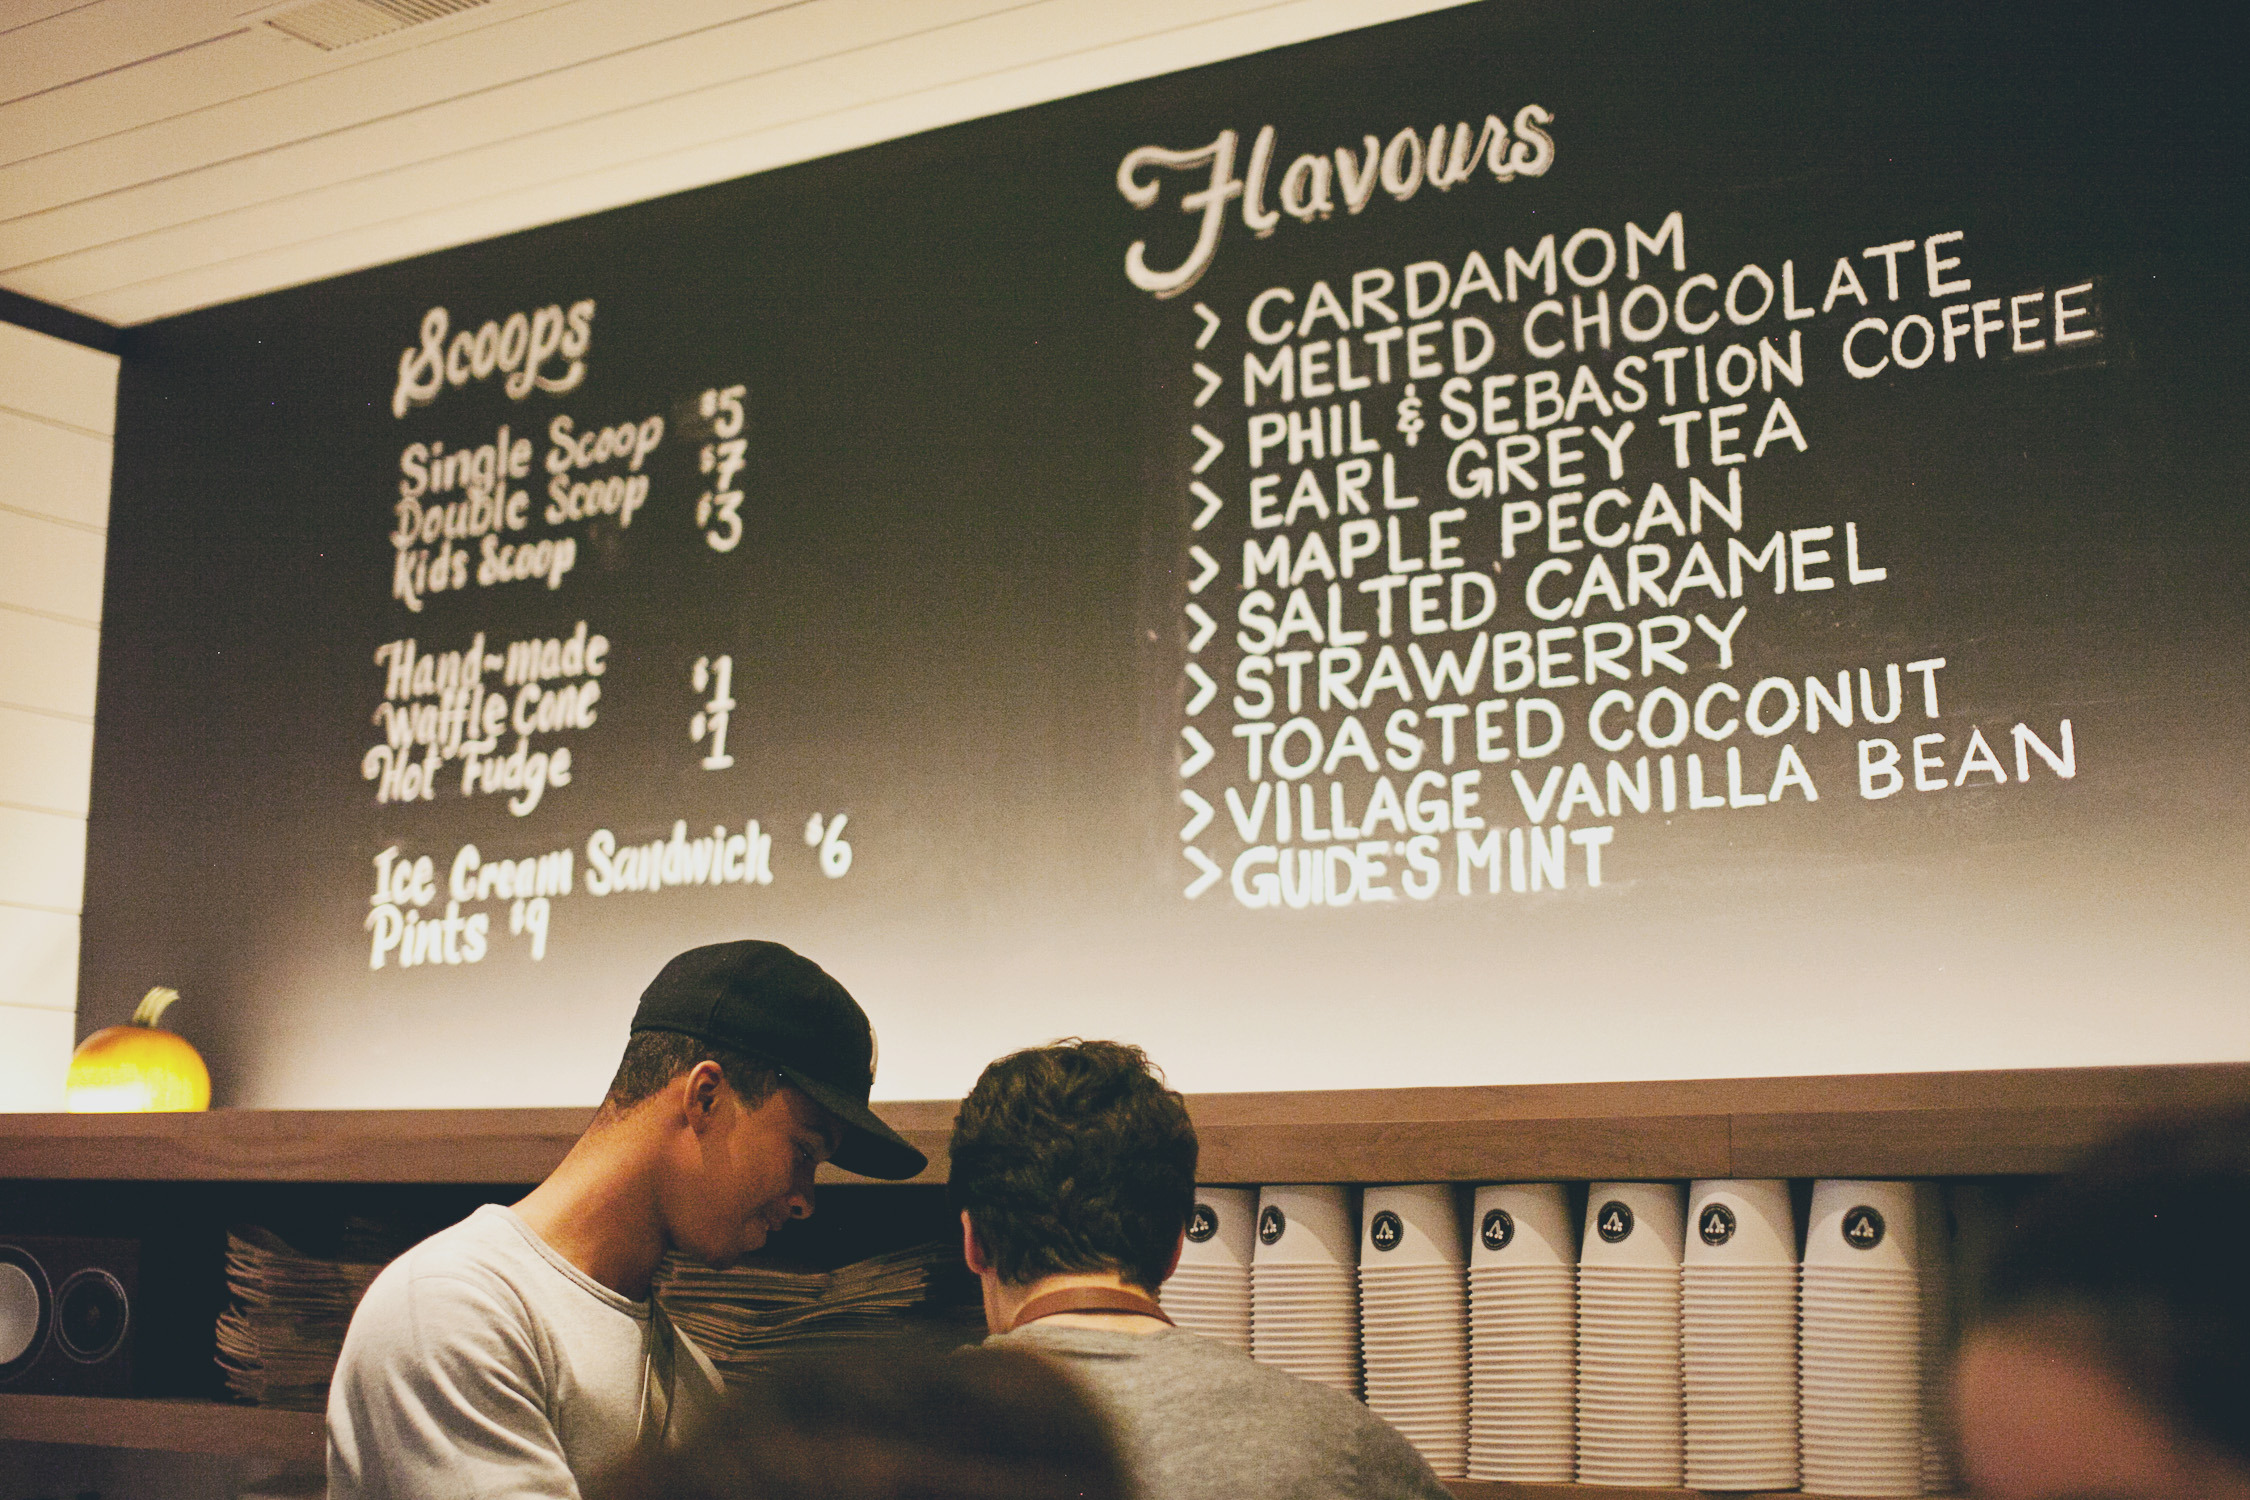 Scoops
Single Scoop $5
Double Scoop $7
Kids Scoop $3
Hand-made
Waffle Cone $1
Hot Fudge $1
Ice Cream Sandwich $6
Pints $9
Flavours
> CARDAMOM
> MELTED CHOCOLATE
> PHIL & SEBASTION COFFEE
> EARL GREY TEA
> MAPLE PECAN
> SALTED CARAMEL
> STRAWBERRY
> TOASTED COCONUT
> VILLAGE VANILLA BEAN
> GUIDE'S MINT